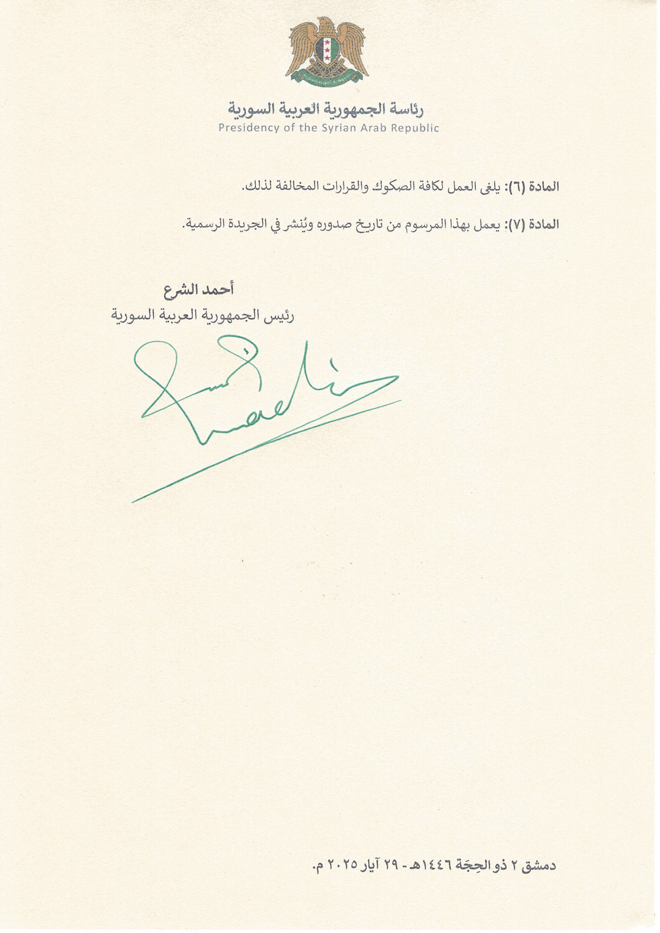 رئاسة الجمهورية العربية السورية
Presidency of the Syrian Arab Republic
المادة (٦): يلغى العمل لكافة الصكوك والقرارات المخالفة لذلك.
المادة (٧): يعمل بهذا المرسوم من تاريخ صدوره ويُنشر في الجريدة الرسمية.
أحمد الشرع
رئيس الجمهورية العربية السورية
دمشق ٢ ذو الحِجَة ١٤٤٦هـ - ٢٩ آيار ٢٠٢٥ م.